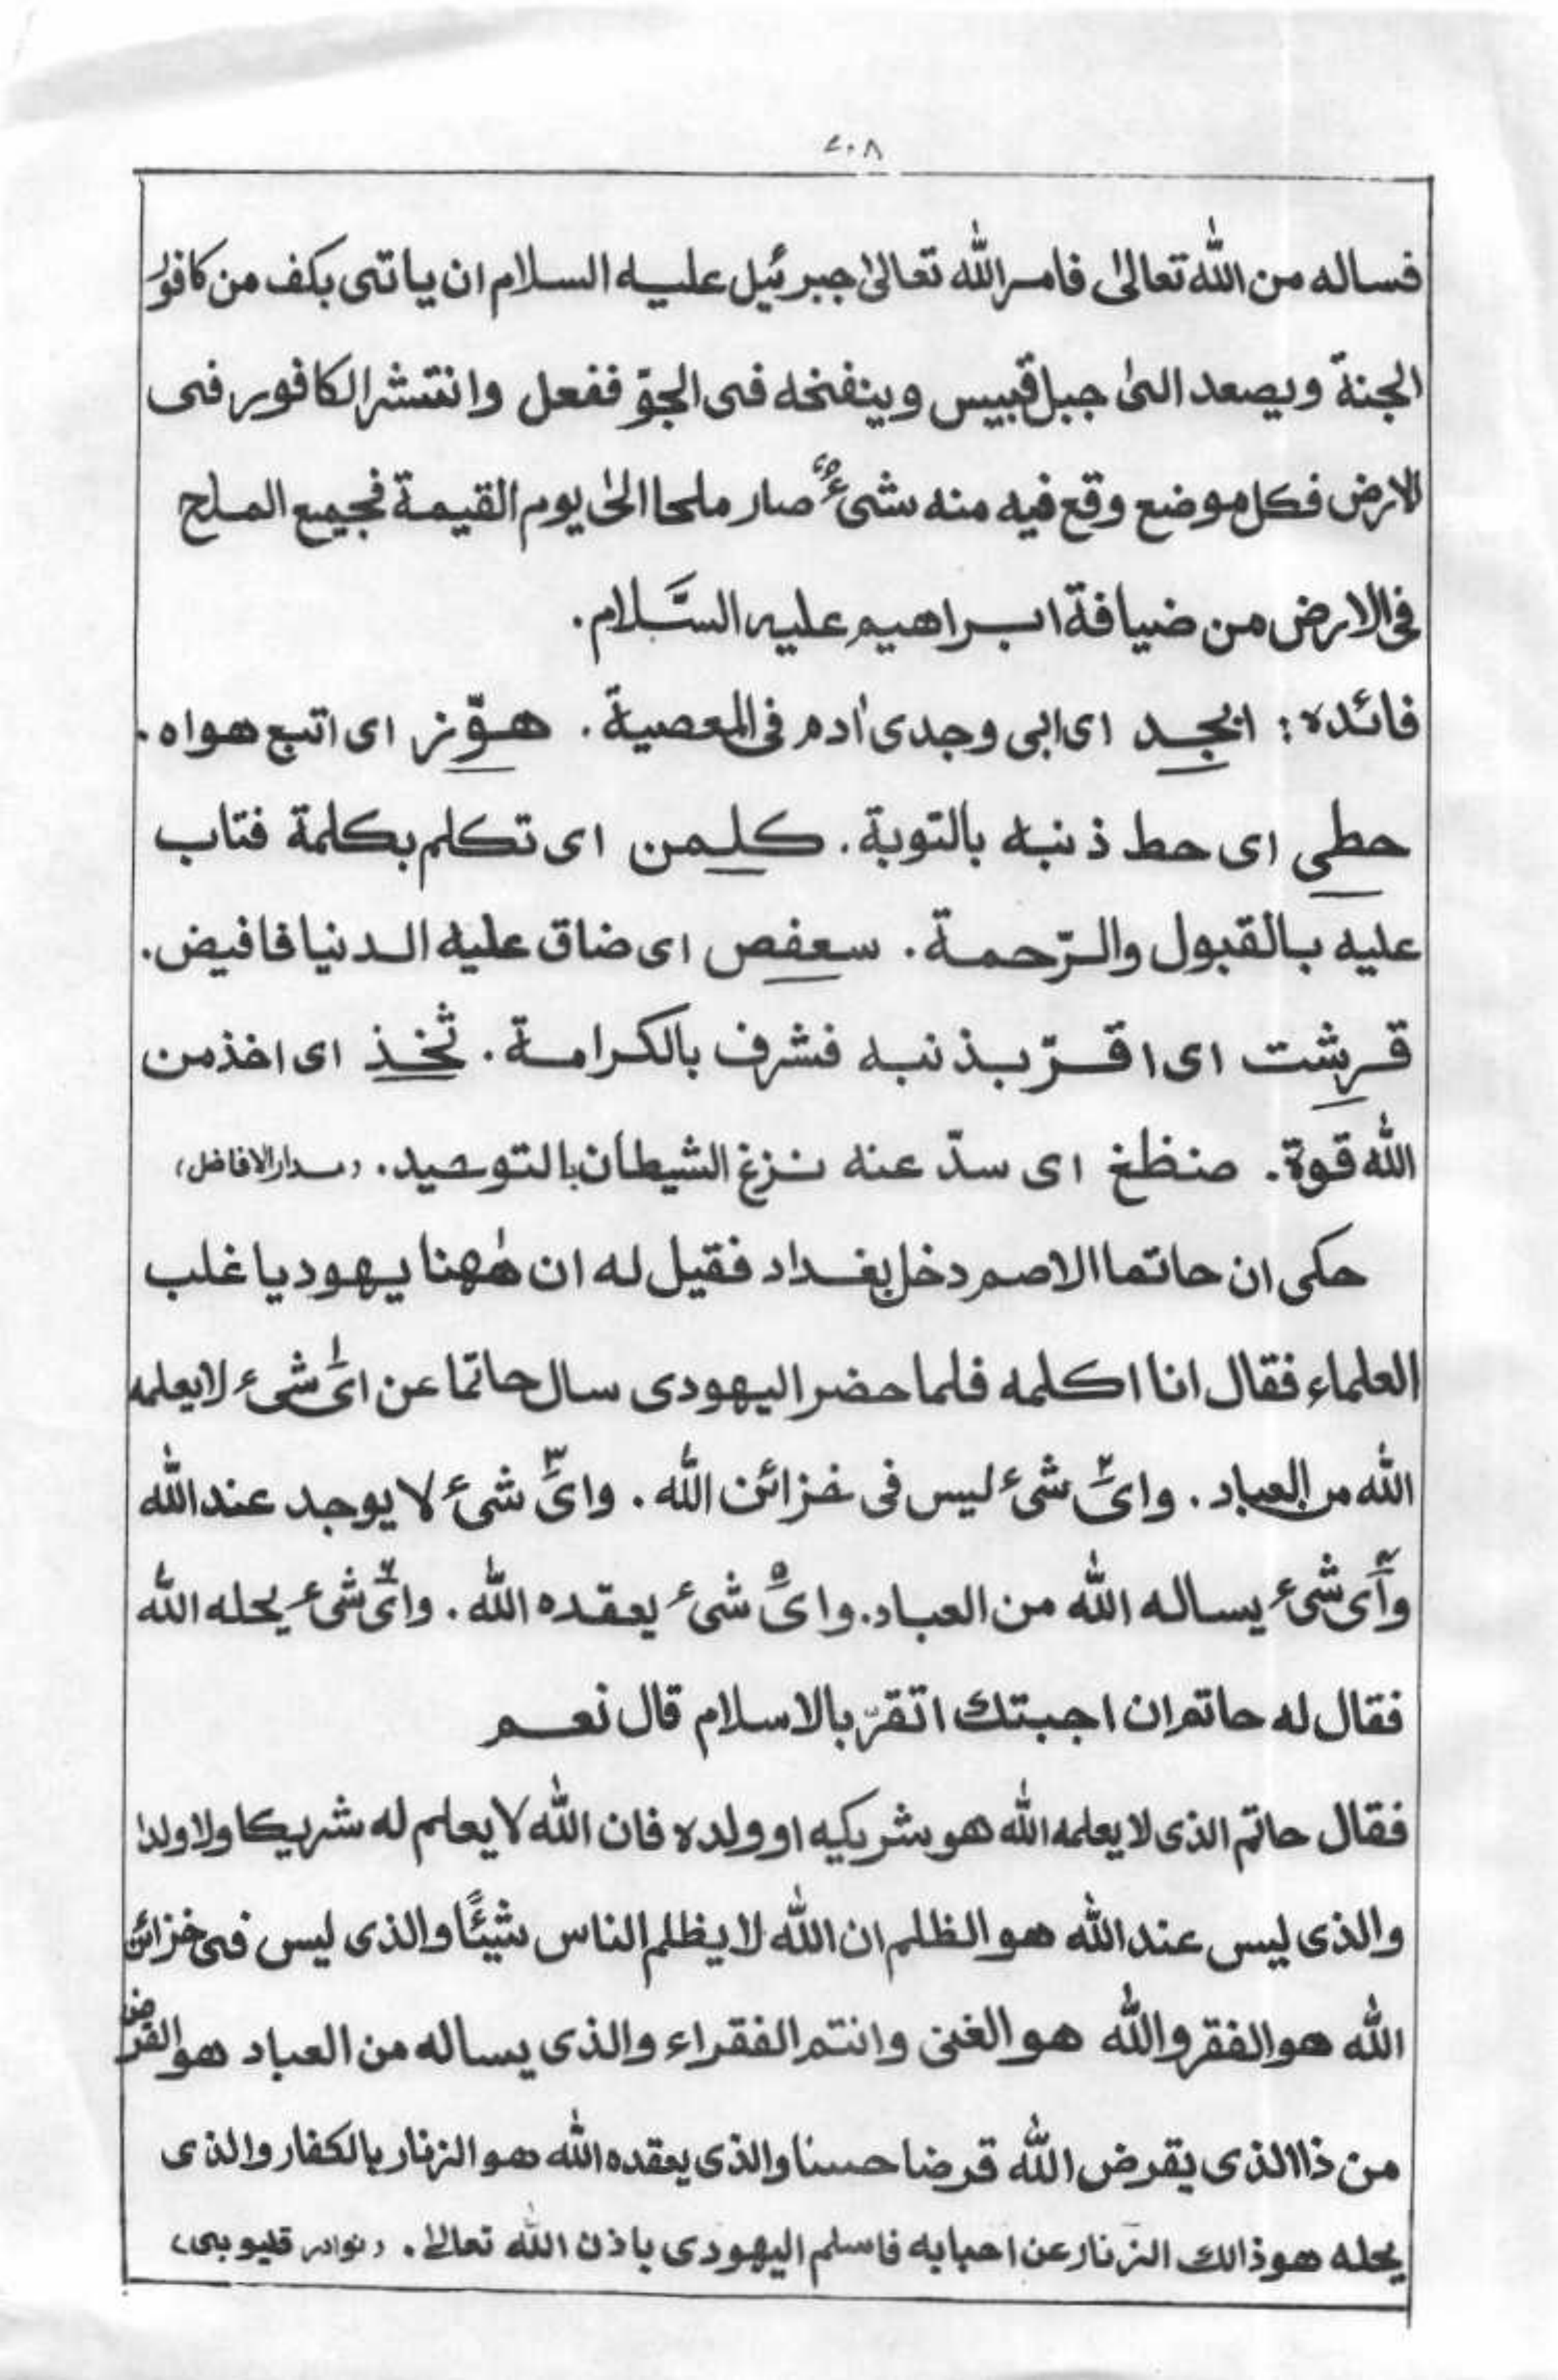 ۲۰۸
فساله من الله تعالیٰ فامر الله تعالیٰ جبرئیل علیه السلام ان یاتی بکف من کافور
الجنة ویصعد الیٰ جبل قبیس وینفخه فی الجوّ ففعل وانتشر الکافور فی
الارض فکل موضع وقع فیه منه شیءٌ صار ملحا الیٰ یوم القیمة فجمیع الملح
فی الارض من ضیافة ابراهیم علیه السَّلام۔
فائده: ابجد ای ابی وجدی اٰدم فی المعصیة۔ هوّز ای اتبع هواه۔
حطی ای حط ذنبه بالتوبة۔ کلمن ای تکلم بکلمة فتاب
علیه بالقبول والرّحمة۔ سعفص ای ضاق علیه الدنیا فافیض۔
قرشت ای اقرّ بذنبه فشرف بالکرامة۔ ثخذ ای اخذ من
الله قوة۔ ضظغ ای سدّ عنه نزغ الشیطان بالتوحید۔ (مدار الافاضل)
حکی ان حاتما الاصم دخل بغداد فقیل له ان هٰهنا یهودیا غلب
العلماء فقال انا اکلمه فلما حضر الیهودی سال حاتما عن ایّ۱ شیء لا یعلمه
الله من العباد۔ وایّ۲ شیء لیس فی خزائن الله۔ وایّ۳ شیء لا یوجد عند الله
وایّ۴ شیء یساله الله من العباد۔ وایّ۵ شیء یعقده الله۔ وایّ۶ شیء یحله الله
فقال له حاتم ان اجبتك اتقرّ بالاسلام قال نعم
فقال حاتم الذی لا یعلمه الله هو شریکیه او ولده فان الله لا یعلم له شریکا ولا ولدا
والذی لیس عند الله هو الظلم ان الله لا یظلم الناس شیئًا والذی لیس فی خزائن
الله هو الفقر والله هو الغنی وانتم الفقراء والذی یساله من العباد هو القرض
من ذا الذی یقرض الله قرضا حسنا والذی یعقده الله هو الزنار بالکفار والذی
یحله هو ذالك الزنار عن احبابه فاسلم الیهودی باذن الله تعالیٰ۔ (نوادر قلیوبی)